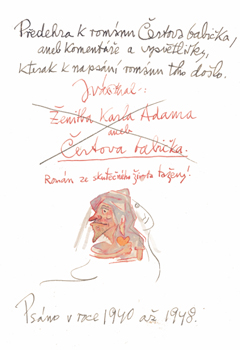 Předehra k románu Čertova babička,
aneb komentáře a vysvětlivky,
kterak k napsání románu toho došlo.
Ženitba Karla Adama
aneb
Čertova babička.
Román ze skutečného života tažený!
Psáno v roce 1940 až 1948.